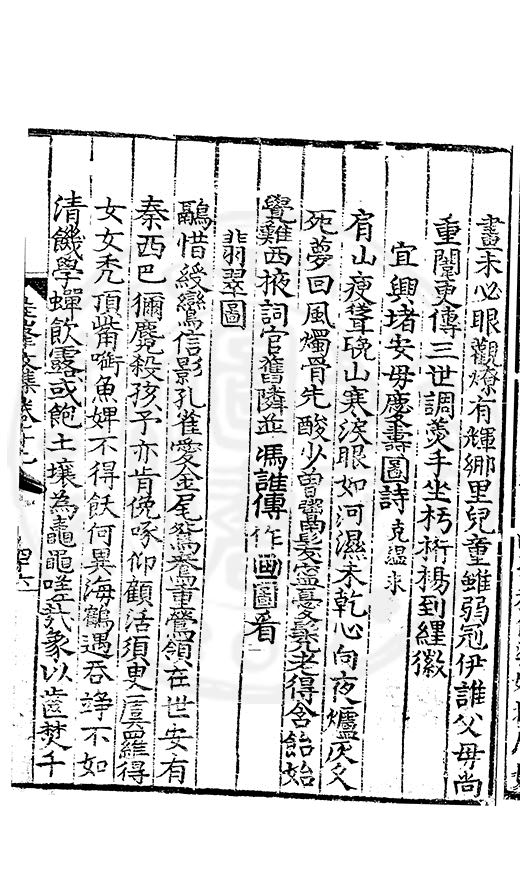 畫未必眼觀燎有輝鄉里兒童雖弱冠伊誰父母尚
重闈更傳三世調羹手坐朽裄褐到纆徽
宜興堵安毋慶壽圖詩克溫來
肩山瘦聳晚山寒淚眼如河濕未乾心向夜爐灰欠
死夢回風燭骨先酸少曽鬻髮盔憂髡老得含飴始
覺雞西掖詞官舊隣並馮誰傳作画圖看
翡翠圖
鷸惜綬鸞信影孔雀愛金尾鴛鴦重鶯領在世安有
秦西巴獮麑殺孩予亦肯俛啄仰顧活須臾虞羅得
女女禿頂觜㗱魚婢不得飫何異海鶴遇吞諍不如
清饑學蟬飲露或飽土壤為鼃黽嗟哉象以齒焚千
文集卷十九